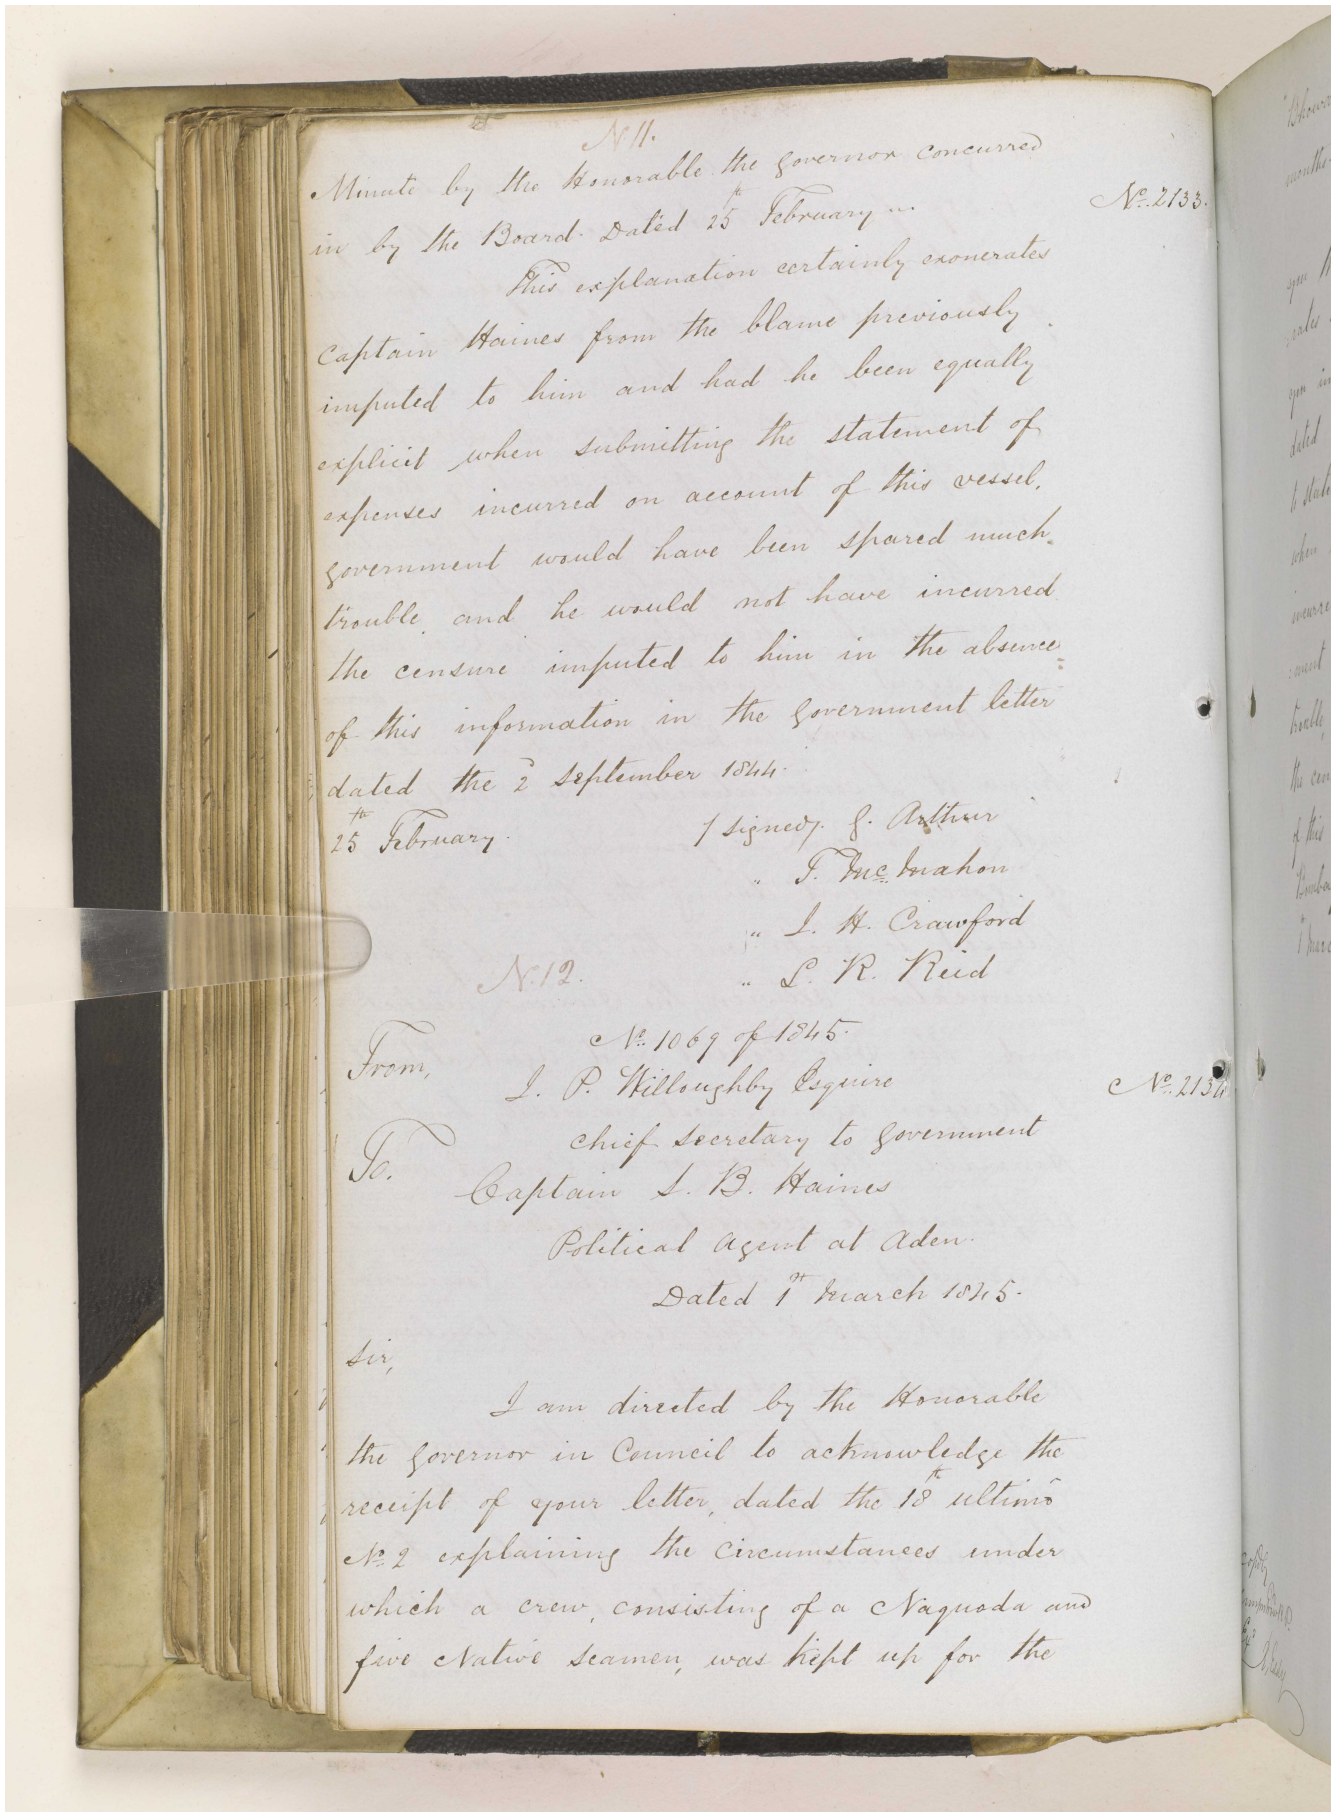 N. 11.
Minute by the Honorable the Governor concurred
in by the Board. Dated 25th February ...
No. 2133.
This explanation certainly exonerates
Captain Haines from the blame previously
imputed to him and had he been equally
explicit when submitting the statement of
expenses incurred on account of this vessel,
government would have been spared much
trouble and he would not have incurred
the censure imputed to him in the absence
of this information in the Government letter
dated the 2d September 1844.
25th February.
/signed/. G. Arthur
" T. McMahon
" J. H. Crawford
" L. R. Reid
N. 12.
No. 1069 of 1845.
From,
J. P. Willoughby Esquire
Chief Secretary to Government
No. 2134
To.
Captain S. B. Haines
Political Agent at Aden.
Dated 1st March 1845.
Sir,
I am directed by the Honorable
the Governor in Council to acknowledge the
receipt of your letter, dated the 18th ultimo
No. 2 explaining the circumstances under
which a crew, consisting of a Naquoda and
five Native seamen, was kept up for the
months
you
rates
you in
dated
to state
when
incurre
ment
trouble,
the cen
of this
Bomba
1 Marc